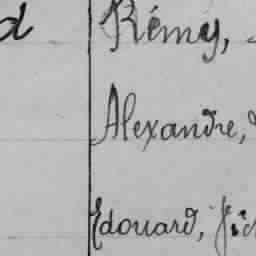 d Rémy,
Alexandre,
Edouard,